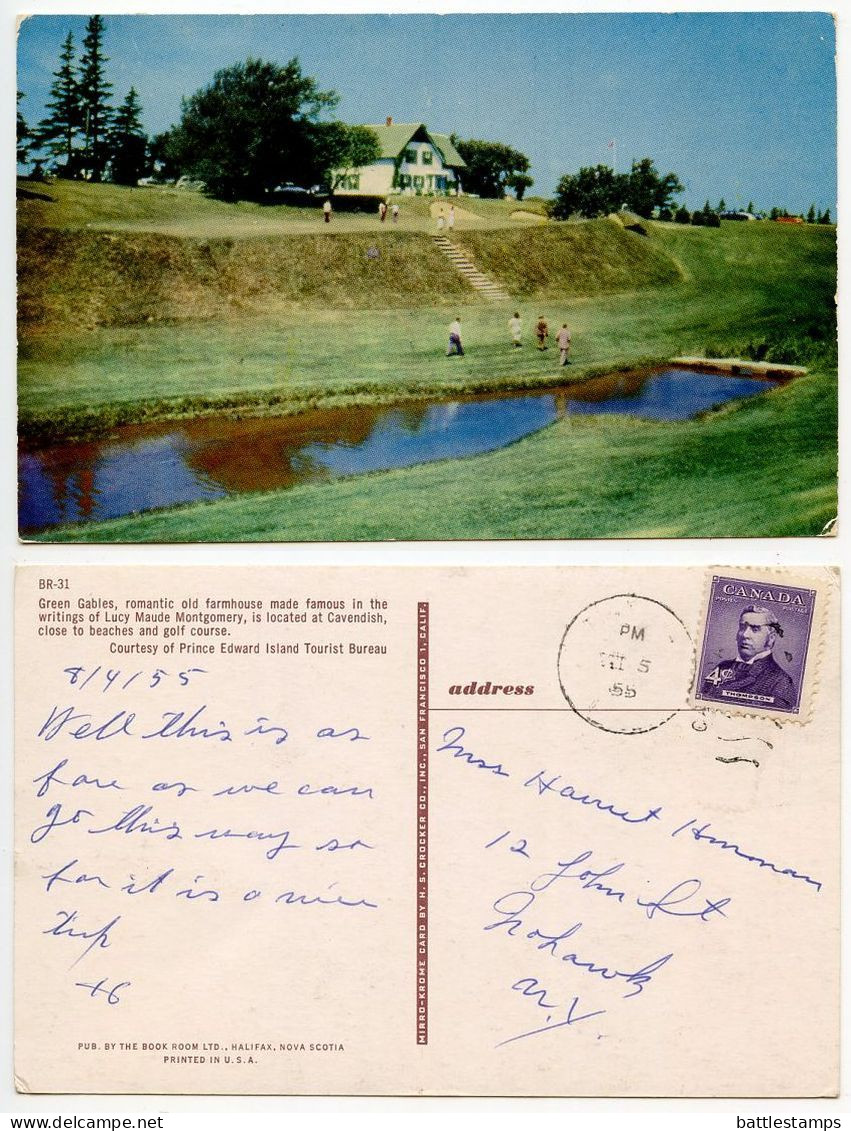 BR-31
Green Gables, romantic old farmhouse made famous in the
writings of Lucy Maude Montgomery, is located at Cavendish,
close to beaches and golf course.
Courtesy of Prince Edward Island Tourist Bureau
8/4/55
Well this is as
fare as we can
go this way so
far it is a nice
trip
MIRRO-KROME CARD BY H. S. CROCKER CO., INC., SAN FRANCISCO 1, CALIF.
address
PM
5
55
CANADA
POSTES POSTAGE
4¢
THOMPSON
Miss Harriet Herrman
12 John St
Mohawk
N.Y.
PUB. BY THE BOOK ROOM LTD., HALIFAX, NOVA SCOTIA
PRINTED IN U.S.A.
delcampe.net
battlestamps